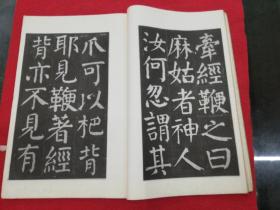 牽經鞭之曰
麻姑者神人
汝何忽謂其
爪可以杷背
耶見鞭著經
背亦不見有